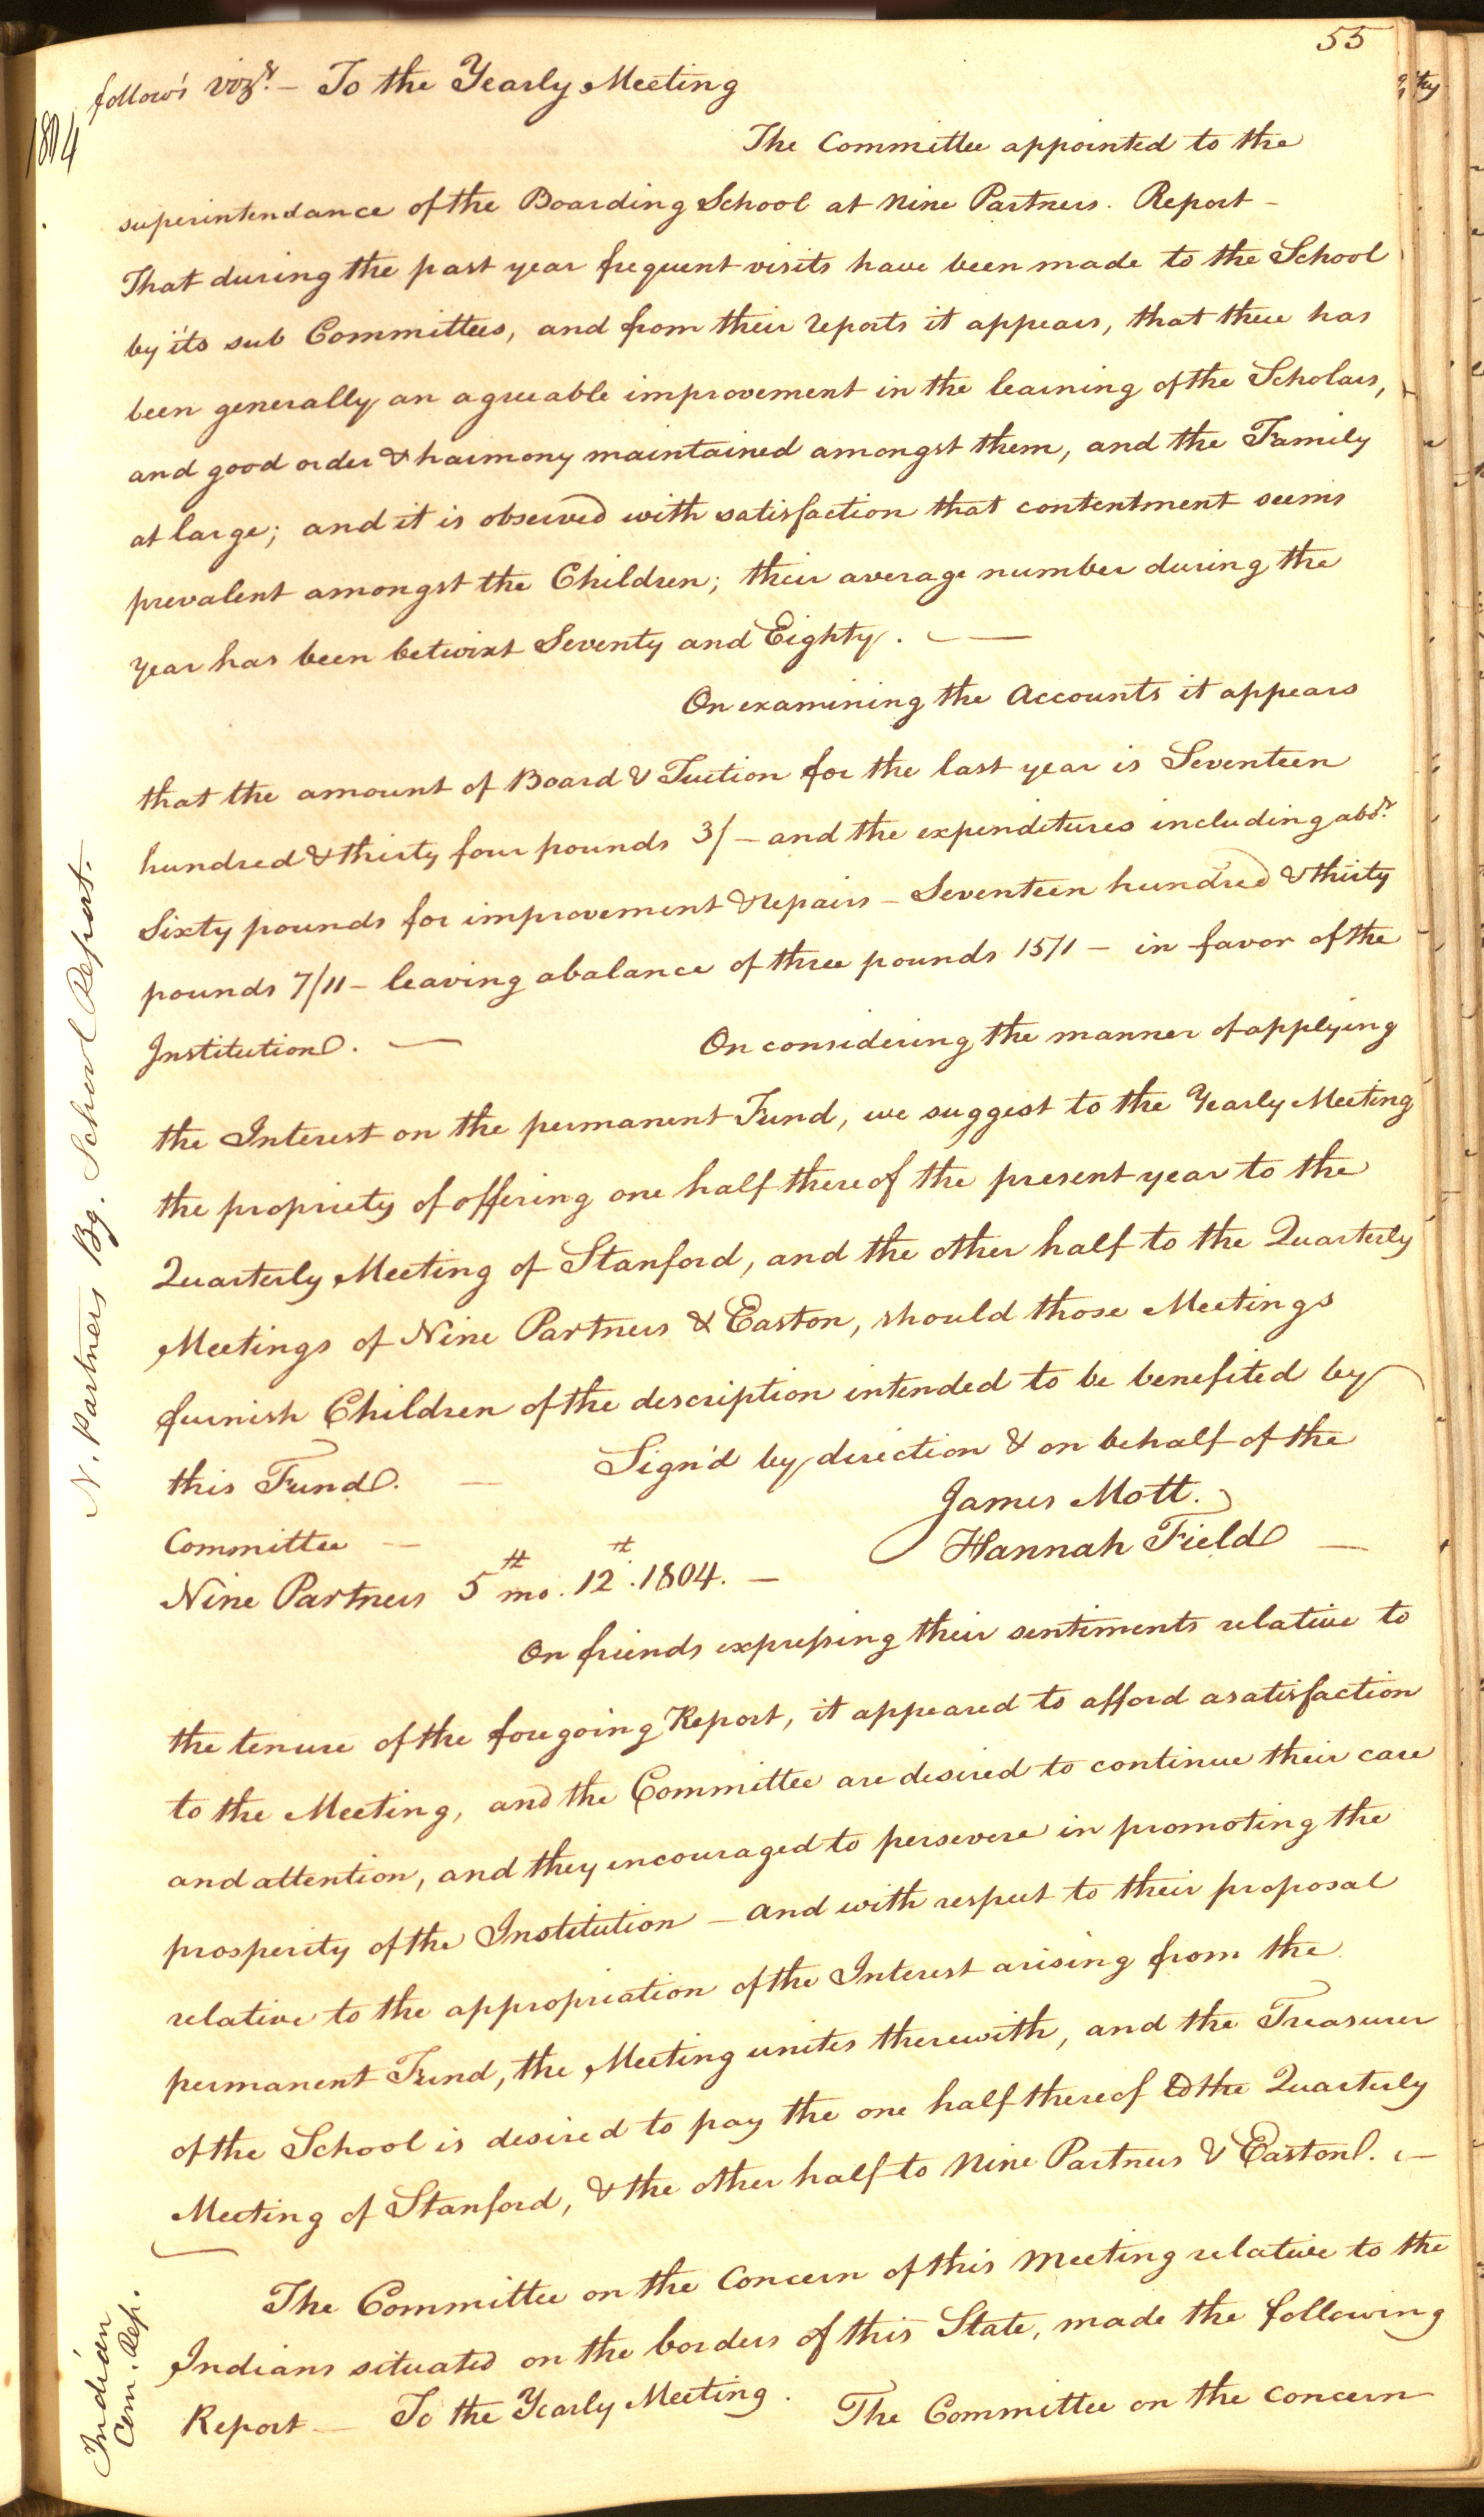 55
1804
follow's viz.t – To the Yearly Meeting
The Committee appointed to the
superintendance of the Boarding School at Nine Partners. Report –
That during the past year frequent visits have been made to the School
by it's sub Committees, and from their reports it appears, that there has
been generally an agreeable improvement in the learning of the Scholars,
and good order & harmony maintained amongst them, and the Family
at large; and it is observed with satisfaction that contentment seems
prevalent amongst the Children; their average number during the
year has been betwixt Seventy and Eighty. —
On examining the Accounts it appears
that the amount of Board & Tuition for the last year is Seventeen
hundred & thirty four pounds 3/ – and the expenditures including abo.t
Sixty pounds for improvement & repairs – Seventeen hundred & thirty
pounds 7/11 – leaving a balance of three pounds 15/1 – in favor of the
Institution. — On considering the manner of applying
the Interest on the permanent Fund, we suggest to the Yearly Meeting
the propriety of offering one half thereof the present year to the
Quarterly Meeting of Stanford, and the other half to the Quarterly
Meetings of Nine Partners & Easton, should those Meetings
furnish Children of the description intended to be benefited by
this Fund. — Sign'd by direction & on behalf of the
Committee — James Mott.
Hannah Field —
Nine Partners 5th mo. 12th. 1804. —
On friends expressing their sentiments relative to
the tenure of the foregoing Report, it appeared to afford a satisfaction
to the Meeting, and the Committee are desired to continue their care
and attention, and they encouraged to persevere in promoting the
prosperity of the Institution – and with respect to their proposal
relative to the appropriation of the Interest arising from the
permanent Fund, the Meeting unites therewith, and the Treasurer
of the School is desired to pay the one half thereof to the Quarterly
Meeting of Stanford, & the other half to Nine Partners & Easton. —
The Committee on the Concern of this Meeting relative to the
Indians situated on the borders of this State, made the following
Report — To the Yearly Meeting. The Committee on the Concern
N. Partners Bg. School Report.
Indian
Com. Rep.